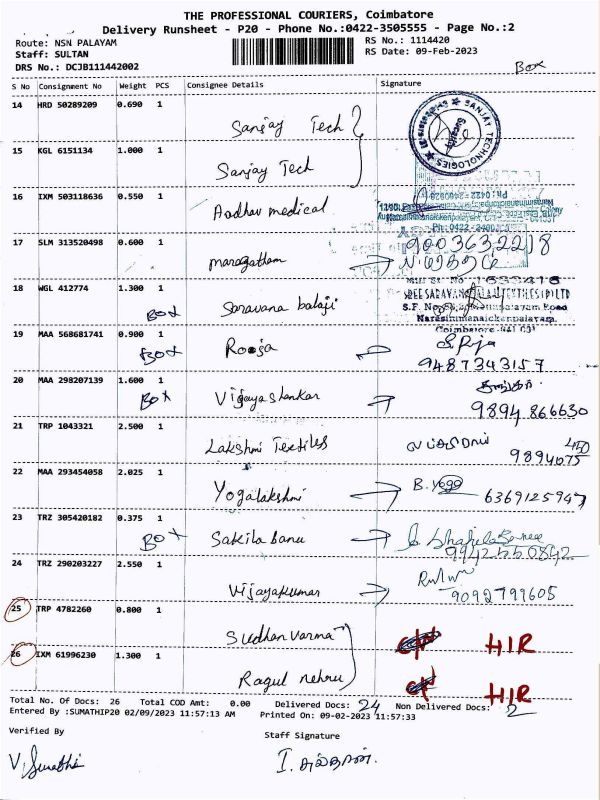 THE PROFESSIONAL COURIERS, Coimbatore
Delivery Runsheet - P20 - Phone No.:0422-3505555 - Page No.:2
Route: NSN PALAYAM RS No.: 1114420
Staff: SULTAN RS Date: 09-Feb-2023
DRS No.: DCJB111442002
Box
S No Consignment No Weight PCS Consignee Details Signature
14 HRD 50289209 0.690 1
Sanjay Tech
SANJAY TECHNOLOGIES
15 KGL 6151134 1.000 1
Sanjay Tech
16 IXM 503118636 0.550 1
Aadhav medical
17 SLM 313520498 0.600 1
maragatham 9003632218
18 WGL 412774 1.300 1
Box Saravana balaji
S.F. No.
Naresimmanaickenpalayam,
Coimbatore-641 031
19 MAA 568681741 0.900 1
Box Rooja S. Roja
9487343157
20 MAA 298207139 1.600 1
Box Vijayashankar
9894 866630
21 TRP 1043321 2.500 1
Lakshmi Textiles
9894075
22 MAA 293454058 2.025 1
Yogalakshmi B. Yoga 6369125947
23 TRZ 305420182 0.375 1
Box Sakila banu
9942550842
24 TRZ 290203227 2.550 1
Vijayakumar
9092799605
25 TRP 4782260 0.800 1
Sudhan varma HIR
26 IXM 61996230 1.300 1
Ragul nehru HIR
Total No. Of Docs: 26 Total COD Amt: 0.00 Delivered Docs: 24 Non Delivered Docs: 2
Entered By :SUMATHIP20 02/09/2023 11:57:13 AM Printed On: 09-02-2023 11:57:33
Verified By Staff Signature
V. Sumathi I. சுல்தான்.